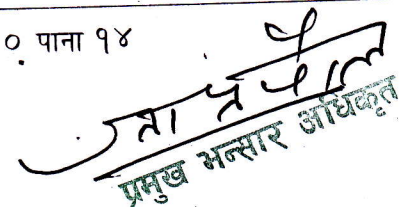 ० पाना १४
प्रमुख भन्सार अधिकृत